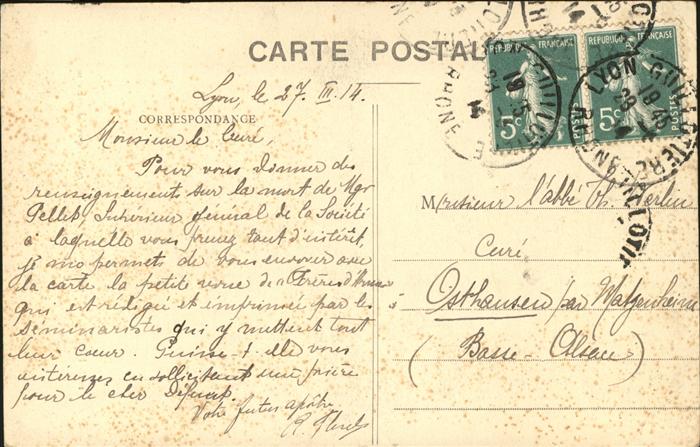 CARTE POSTALE
REPUBLIQUE FRANÇAISE
5c
POSTES
REPUBLIQUE FRANÇAISE
5c
POSTES
LYON GUILLOTIERE
RHONE
Lyon, le 27. III. 14.
CORRESPONDANCE
Monsieur le Curé,
Pour vous donner des
renseignements sur la mort de Mgr
Pellet, Supérieur général de la Société
à laquelle vous prenez tant d'intérêt,
je me permets de vous envoyer avec
la carte la petite revue des "Frères d'Armes"
qui est rédigée et imprimée par les
séminaristes qui y mettent tout
leur cœur. Puisse-t-elle vous
intéresser en sollicitant une prière
pour le cher Défunt.
Votre futur apôtre
Monsieur l'abbé Th. Kerlin
Curé
Osthausen par Matzenheim
(Basse-Alsace)